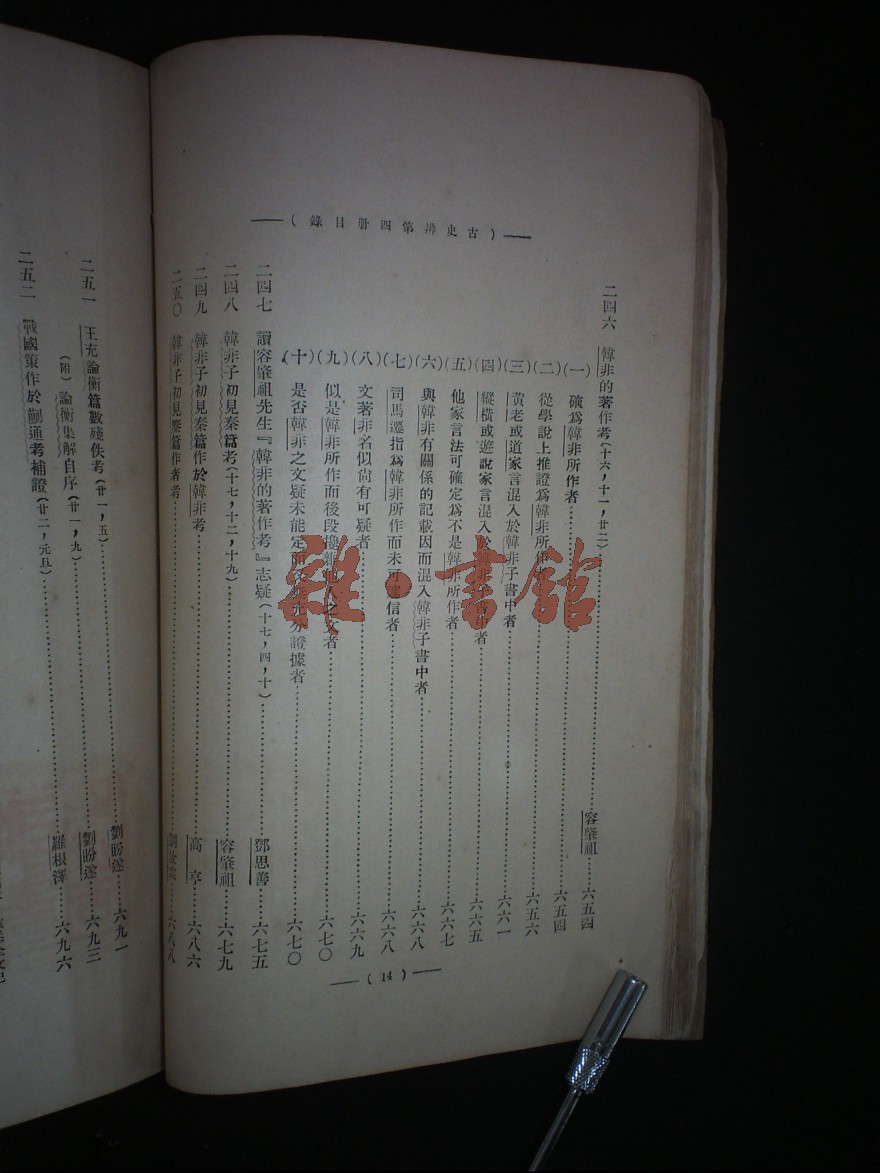 (古史辨第四册目錄)
二四六 韓非的著作考(十六,十一,廿二)……容肇祖……六五四
(一)確爲韓非所作者……六五四
(二)從學說上推證爲韓非所作者……六五六
(三)黃老或道家言混入於韓非子書中者……六六一
(四)縱橫或遊說家言混入於韓非子書中者……六六五
(五)他家言法可確定爲不是韓非所作者……六六七
(六)與韓非有關係的記載因而混入韓非子書中者……六六八
(七)司馬遷指爲韓非所作而未可 信者……六六八
(八)文著非名似尚有可疑者……六六九
(九)似是韓非所作而後段攙 他人之文者……六七〇
(十)是否韓非之文疑未能定而 充分證據者……六七〇
二四七 讀容肇祖先生『韓非的著作考』志疑(十七,四,十)……鄧思善……六七五
二四八 韓非子初見秦篇考(十七,十二,十九)……容肇祖……六七九
二四九 韓非子初見秦篇作於韓非考……高亨……六八六
二五〇 韓非子初見秦篇作者考……劉汝霖……六八八
(14)
二五一 王充論衡篇數殘佚考(廿一,五)……劉盼遂……六九一
(附)論衡集解自序(廿一,九)……劉盼遂……六九三
二五二 戰國策作於蒯通考補證(廿二,元旦)……羅根澤……六九六
雜·書館